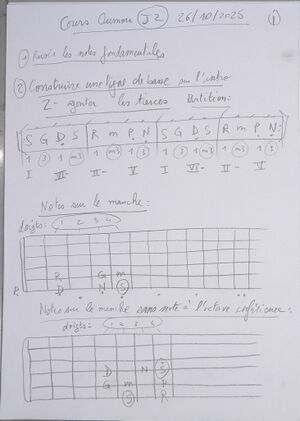 Cours Oumou J2 26/10/2025 1
1 Revoir les notes fondamentales
2 Construire une ligne de basse sur l'intro
2- ajouter les tierces Partition:
S G D S R m P N S G D S R m P N
1 3 1 m3 1 m3 1 3 1 3 1 m3 1 m3 1 3
I VI- II- V I VI- II- V
Notes sur le manche:
doigts: 1 2 3 4
R G m
P. D N S
Notes sur le manche sans note à l'octave inférieure:
doigts: 1 2 3 4
D N S
G m P
S R